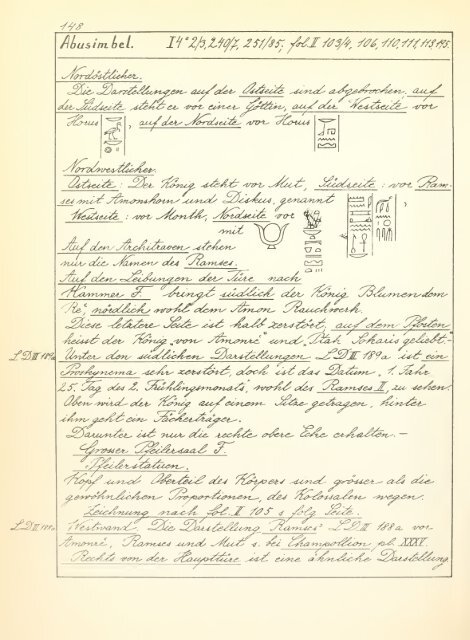 148
Abusimbel. I 4° 2/3, 240/7, 251/85, fol. II 103/4, 106, 110, 111, 113
Nordöstlicher.
Die Darstellungen auf der Ostseite sind abgebrochen, auf
der Südseite steht er vor einer Göttin, auf der Westseite vor
Horus , auf der Nordseite vor Horus
Nordwestlicher.
Ostseite: Der König steht vor Mut, Südseite: vor Ram-
ses mit Amonshorn und Diskus, genannt ,
Westseite: vor Month, Nordseite vor
mit
Auf den Architraven stehen
nur die Namen des Ramses.
Auf den Leibungen der Türe nach
Kammer F. bringt südlich der König Blumen dem
Re, nördlich wohl dem Amon Rauchwerk.
Diese letztere Seite ist halb zerstört, auf dem Pfosten
heisst der König von Amonré und Ptah Sokaris geliebt.-
LD III 189a Unter den südlichen Darstellungen LD III 189a ist ein
Proskynema sehr zerstört, doch ist das Datum, 1. Jahr
25. Tag des 2. Frühlingsmonats, wohl des Ramses II, zu sehen.
Oben wird der König auf einem Sitze getragen, hinter
ihm geht ein Fächerträger.
Darunter ist nur die rechte obere Ecke erhalten.-
Grosser Pfeilersaal F.
Pfeilerstatuen.
Kopf und Oberteil des Körpers sind grösser als die
gewöhnlichen Proportionen, des Kolossalen wegen.
Zeichnung nach fol. II 105 s. folg. Seite.
LD III Westwand. Die Darstellung Ramses' LD III 188a vor
Amonré, Ramses und Mut s. bei Champollion pl. XXXV.
Rechts von der Haupttüre ist eine ähnliche Darstellung